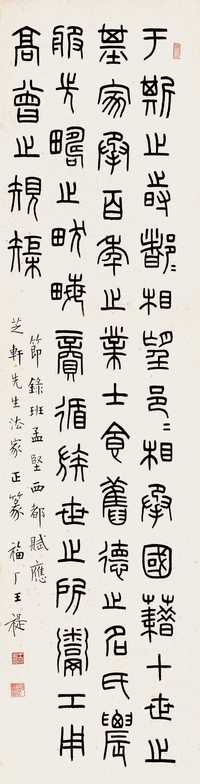 于斯之時都〻相望邑〻相承國藉十世之
基家承百年之業士食舊德之名氏農
服先疇之畎畮商循族世之所鬻工用
高曾之規榘
節錄班孟堅西都賦應
芝軒先生法家正篆 福厂王禔